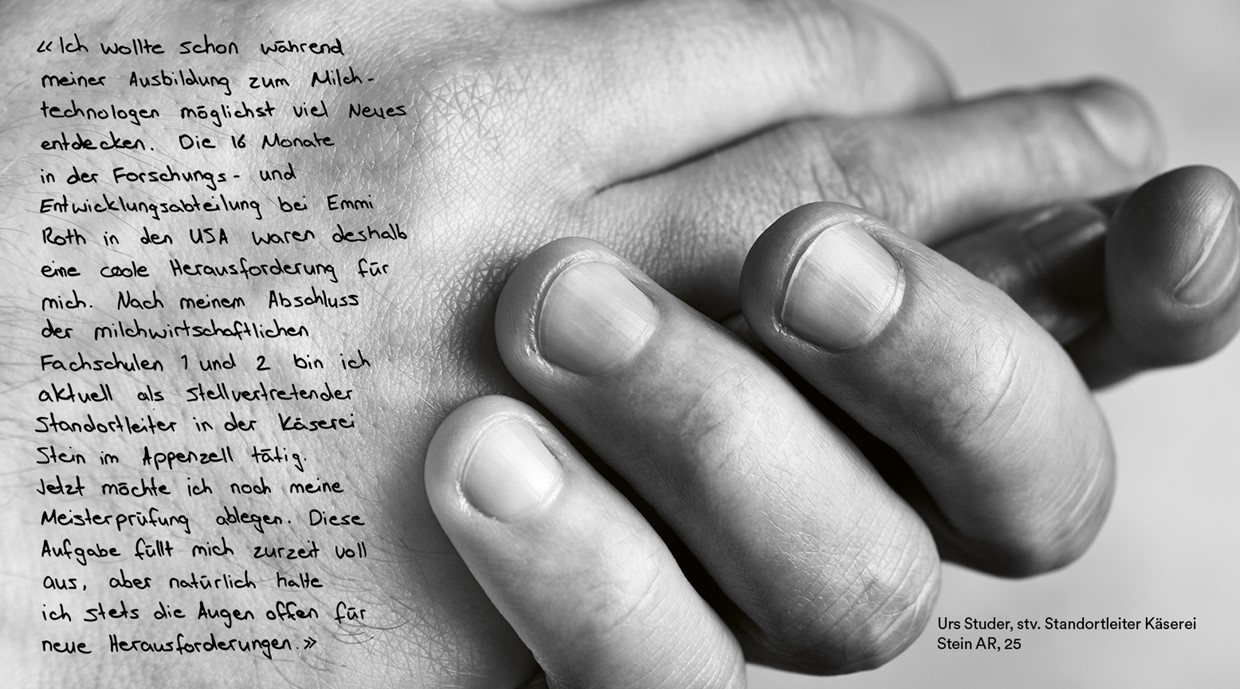 «Ich wollte schon während
meiner Ausbildung zum Milch-
technologen möglichst viel Neues
entdecken. Die 16 Monate
in der Forschungs- und
Entwicklungsabteilung bei Emmi
Roth in den USA waren deshalb
eine coole Herausforderung für
mich. Nach meinem Abschluss
der milchwirtschaftlichen
Fachschulen 1 und 2 bin ich
aktuell als stellvertretender
Standortleiter in der Käserei
Stein im Appenzell tätig.
Jetzt möchte ich noch meine
Meisterprüfung ablegen. Diese
Aufgabe füllt mich zurzeit voll
aus, aber natürlich halte
ich stets die Augen offen für
neue Herausforderungen.»
Urs Studer, stv. Standortleiter Käserei
Stein AR, 25